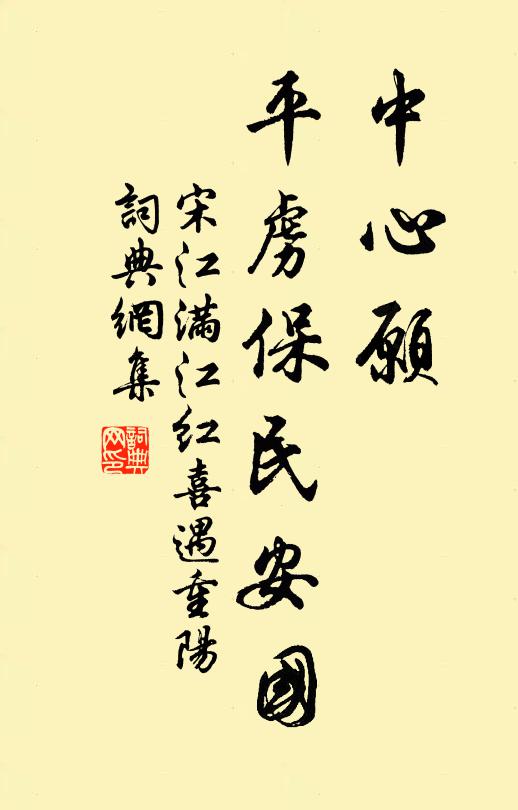 中心願
平虜保民安國
宋江滿江红喜遇重陽
詞典網集
詞典网印